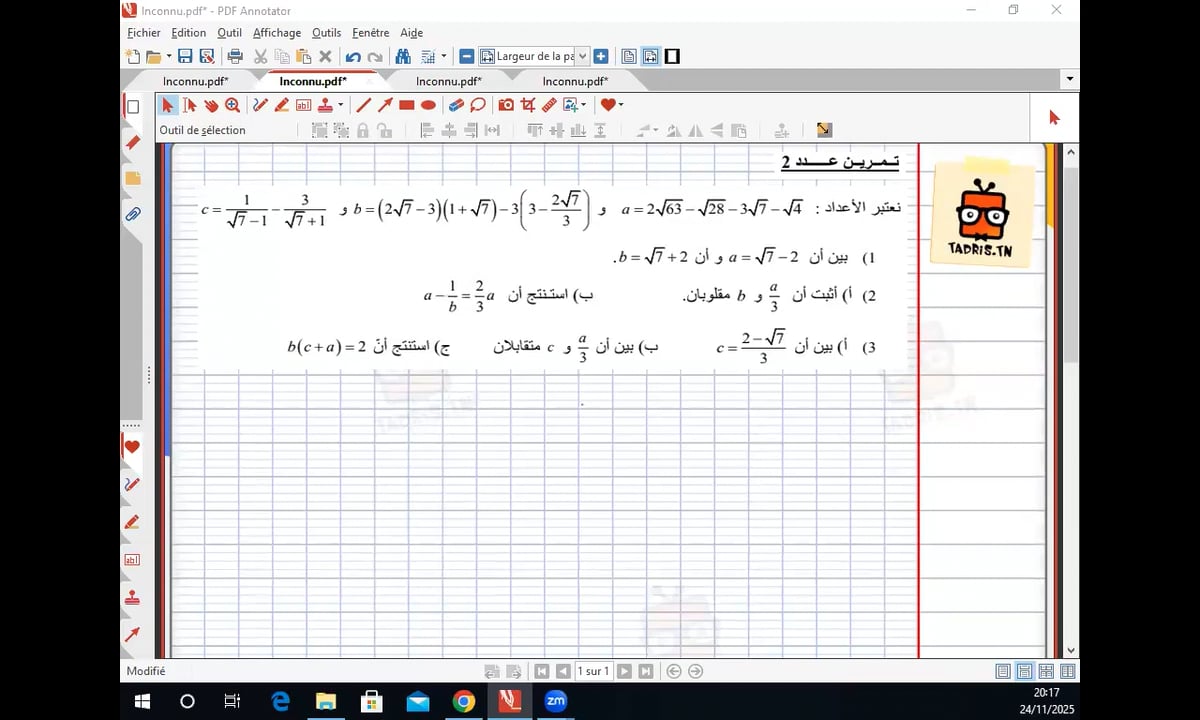 Inconnu.pdf* - PDF Annotator
Fichier Edition Outil Affichage Outils Fenêtre Aide
Largeur de la pa
Inconnu.pdf* Inconnu.pdf* Inconnu.pdf* Inconnu.pdf*
Outil de sélection
تـمـريـن عـــدد 2
نعتبر الأعداد : a = 2√63 − √28 − 3√7 − √4 و b = (2√7 − 3)(1 + √7) − 3(3 − 2√7/3) و c = 1/(√7 − 1) − 3/(√7 + 1)
1) بين أن a = √7 − 2 و أن b = √7 + 2.
2) أ) أثبت أن a/3 و b مقلوبان. ب) استنتج أن a − 1/b = 2/3 a
3) أ) بين أن c = (2 − √7)/3 ب) بين أن a/3 و c متقابلان ج) استنتج أنّ b(c + a) = 2
TADRIS.TN
TADRIS.TN
TADRIS.TN
Modifié
1 sur 1
zm
20:17
24/11/2025